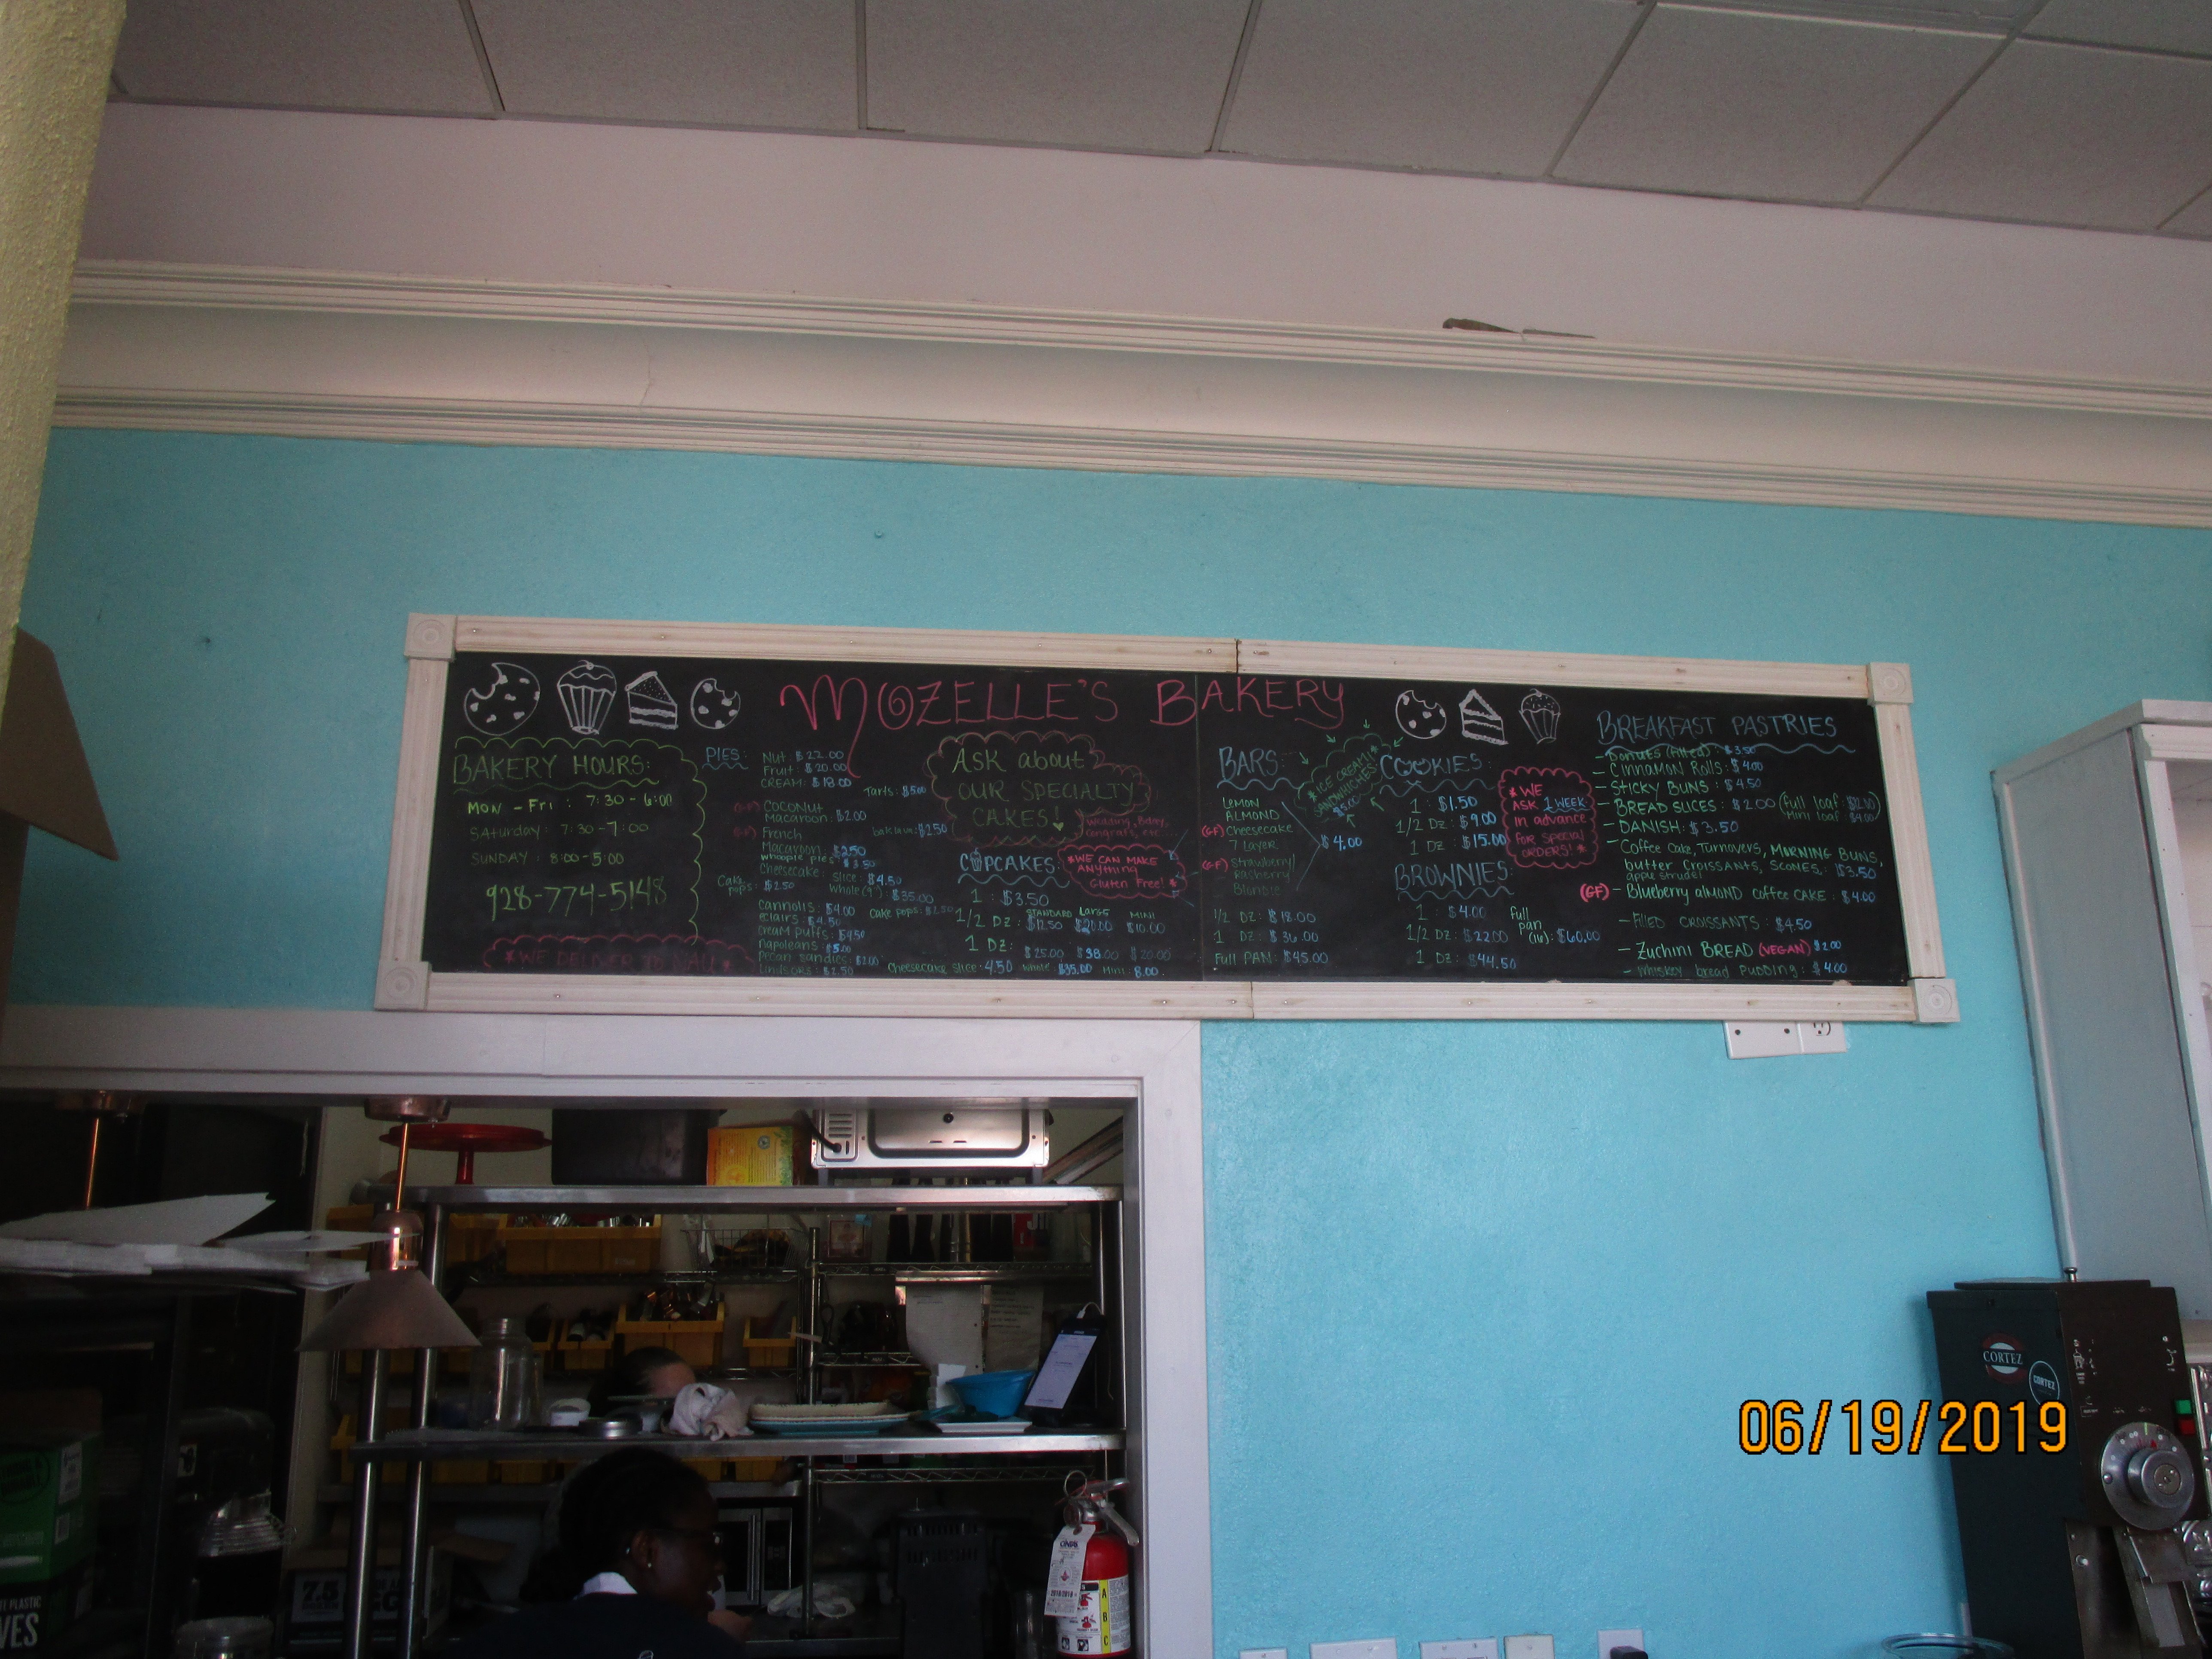 MOZELLE'S BAKERY
BAKERY HOURS:
MON - Fri : 7:30 - 6:00
SATurday: 7:30 - 7:00
SUNDAY : 8:00 - 5:00
928-774-5148
*WE DELIVER
PIES:
Nut $22.00
Fruit $20.00
CREAM: $18.00
Tarts: $5.00
(GF) COCONUT
Macaroon: $2.00
(GF) French
Macaroon: $2.50
baklava: $2.50
whoopie pies: $3.50
Cheesecake: Slice: $4.50
Whole (9"): $35.00
Cake pops: $2.50
Cannolis: $4.00
Cake pops: $2.50
eclairs: $4.50
cream puffs: $4.50
napoleans: $5.00
Pecan sandies: $2.00
Lindsors: $2.50
ASK about
OUR SPECIALTY
CAKES!
Wedding, Bday,
Congrats, etc...
CUPCAKES:
*WE CAN MAKE
ANYthing
Gluten Free! *
1 : $3.50
STANDARD Large MINI
1/2 DZ: $12.50 $20.00 $10.00
1 DZ: $25.00 $38.00 $20.00
Cheesecake Slice: 4.50 whole: $35.00 Mini: 8.00
BARS:
LEMON
ALMOND
(GF) Cheesecake
7 Layer
(GF) Strawberry/
Rasberry
Blondie
$4.00
1/2 DZ: $18.00
1 DZ: $36.00
Full PAN: $45.00
*ICE CREAM!*
SANDWICHES
$5.00
COOKIES:
1 : $1.50
1/2 DZ: $9.00
1 DZ: $15.00
BROWNIES:
1 : $4.00
1/2 DZ: $22.00
1 DZ: $44.50
full
pan
(16): $60.00
*WE
ASK 1 WEEK
in advance
for special
ORDERS! *
BREAKFAST PASTRIES
- Donuts (filled): $3.50
- Cinnamon Rolls: $4.00
- Sticky BUNS: $4.50
- BREAD SLICES: $2.00 (full loaf: $12.50
Mini loaf $4.00)
- DANISH: $3.50
- Coffee Cake, Turnovers, MORNING BUNS,
butter Croissants, SCONES,
apple strudel : $3.50
(GF) - Blueberry almond Coffee CAKE: $4.00
- Filled CROISSANTS: $4.50
- Zuchini BREAD (VEGAN) $2.00
- Whiskey bread Pudding: $4.00
CORTEZ
CORTEZ
06/19/2019
7.5
PLASTIC
VES
A
B
C